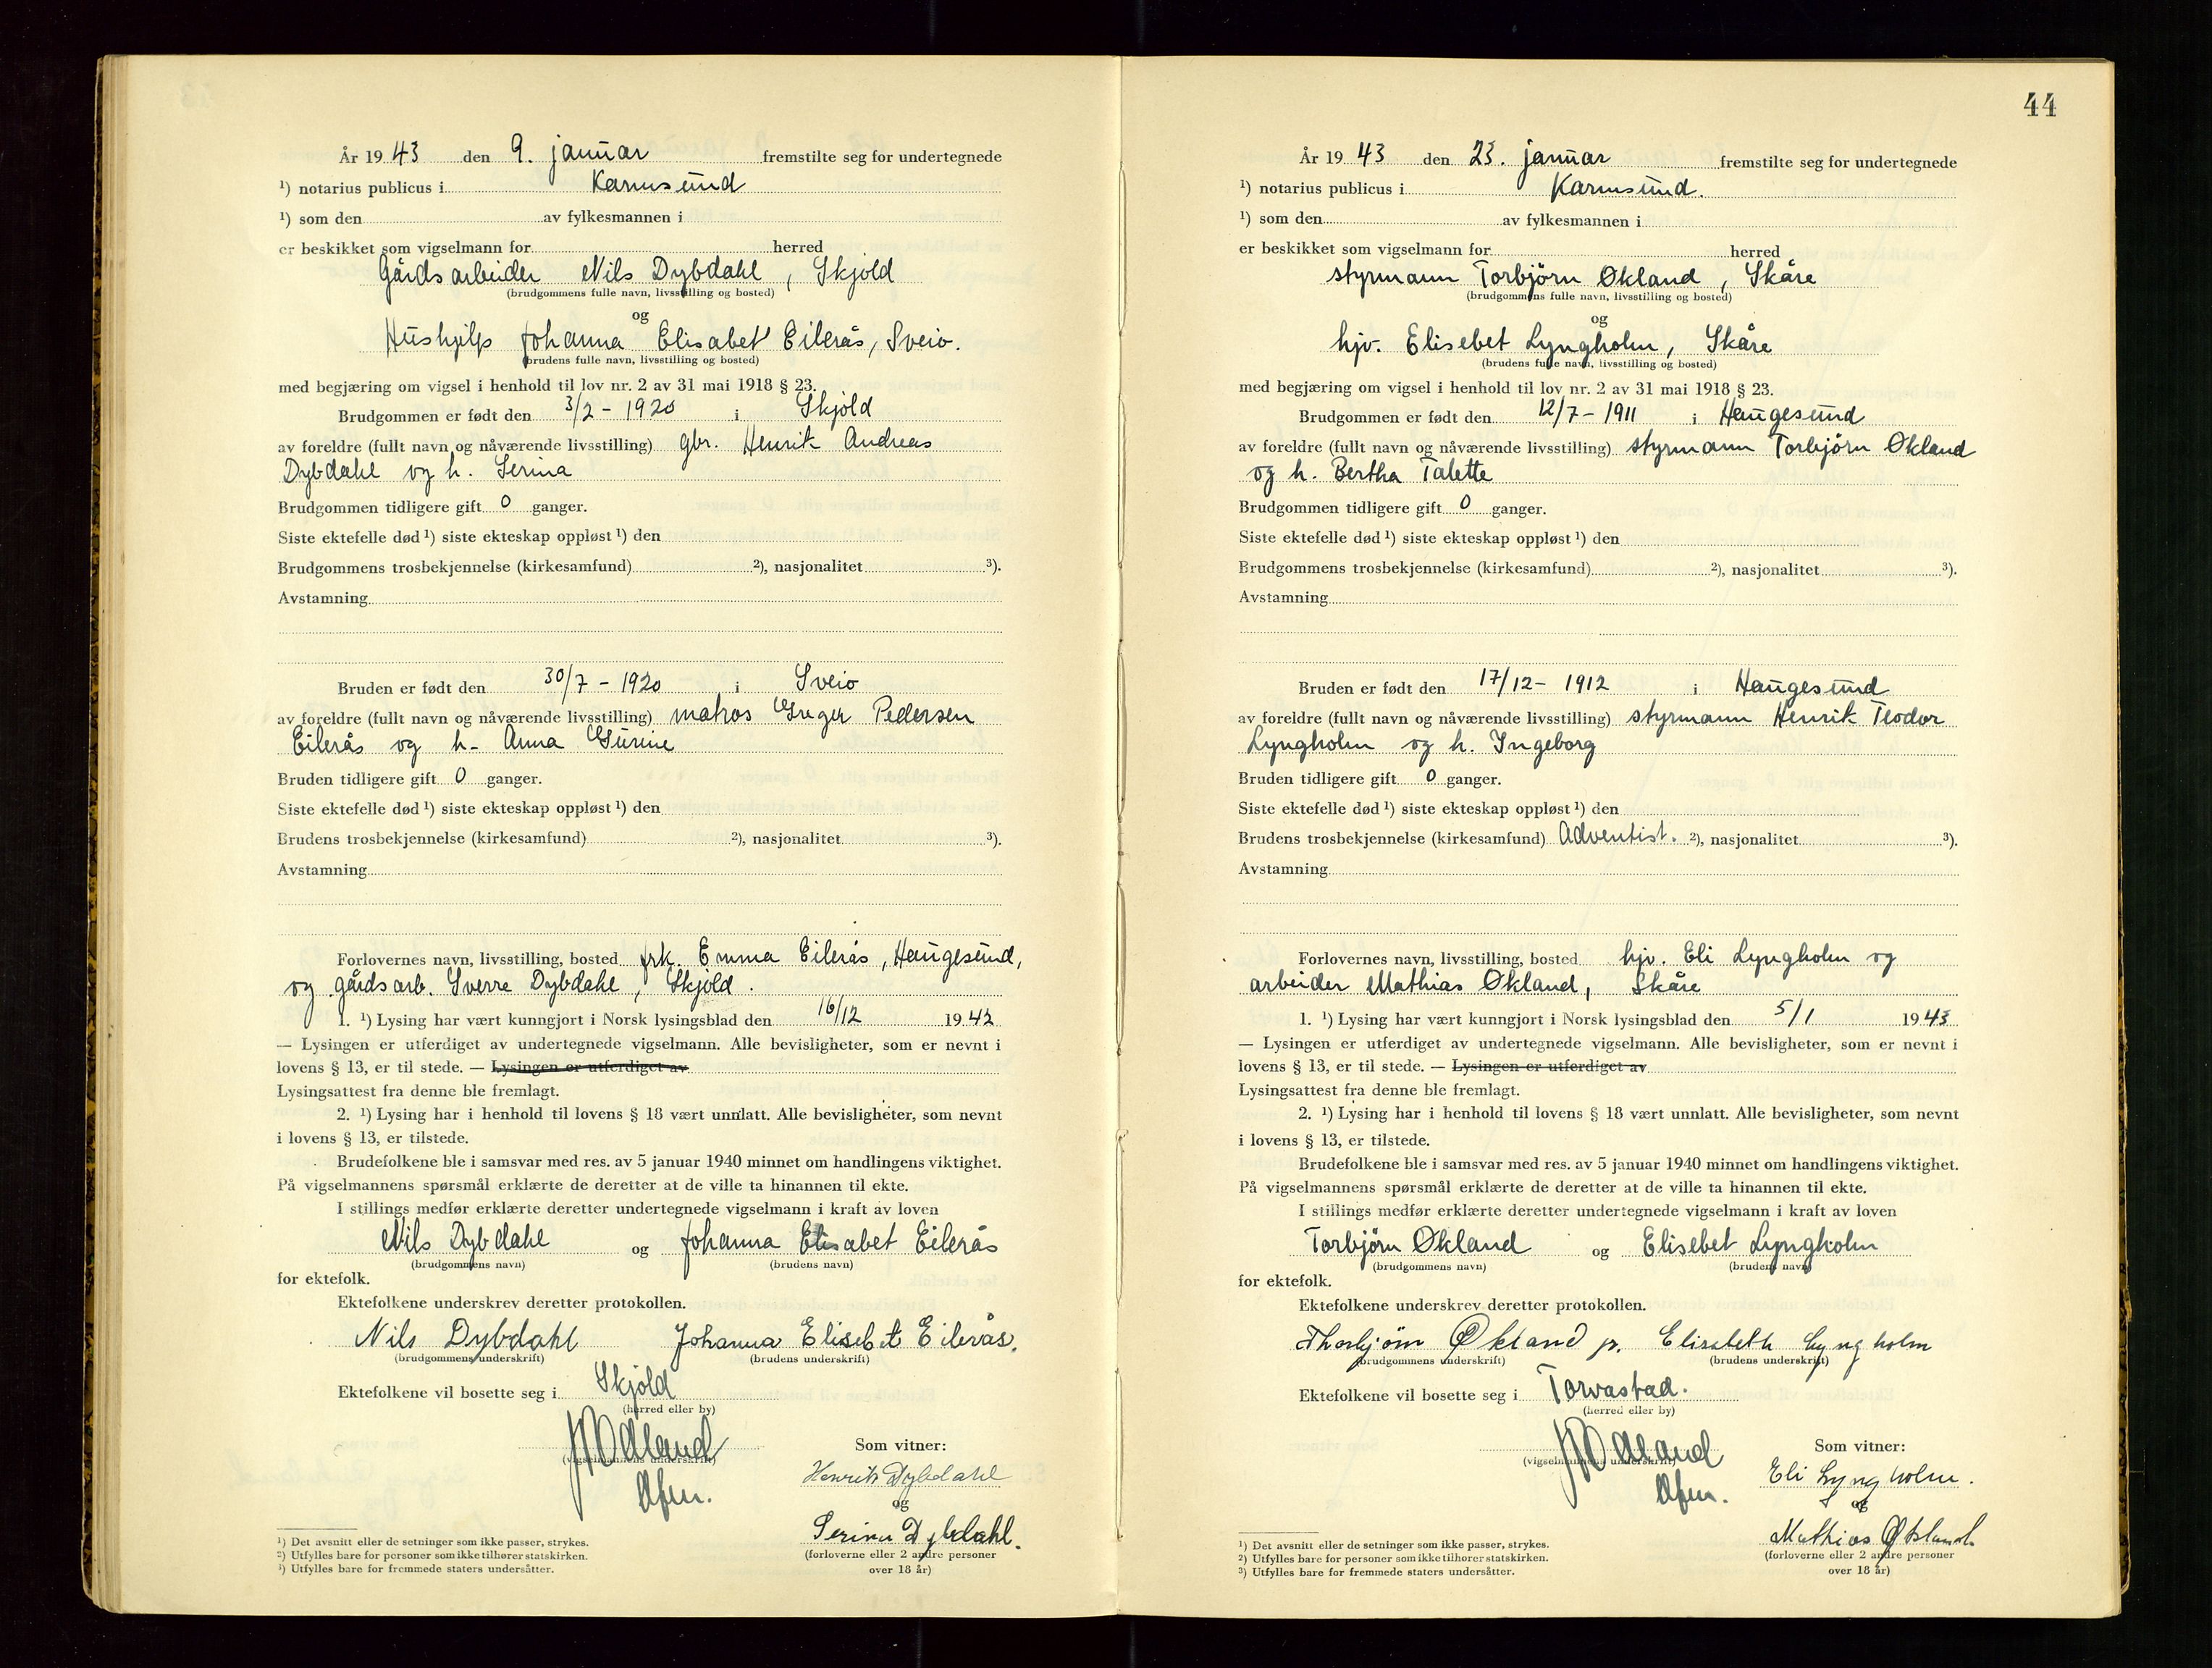 År 1943 den 9. januar fremstilte seg for undertegnede
¹) notarius publicus i Karmsund
¹) som den av fylkesmannen i
er beskikket som vigselmann for herred
Gårdsarbeider Nils Dybdahl, Skjold
(brudgommens fulle navn, livsstilling og bosted)
og
Hushjelp Johanna Elisabet Eilerås, Sveio.
(brudens fulle navn, livsstilling og bosted)
med begjæring om vigsel i henhold til lov nr. 2 av 31 mai 1918 § 23.
Brudgommen er født den 3/2 - 1920 i Skjold
av foreldre (fullt navn og nåværende livsstilling) gbr. Henrik Andreas
Dybdahl og h. Serina
Brudgommen tidligere gift 0 ganger.
Siste ektefelle død ¹) siste ekteskap oppløst ¹) den
Brudgommens trosbekjennelse (kirkesamfund) ²), nasjonalitet ³).
Avstamning
Bruden er født den 30/7 - 1920 i Sveio
av foreldre (fullt navn og nåværende livsstilling) matros Greger Pedersen
Eilerås og h. Anna Gurine
Bruden tidligere gift 0 ganger.
Siste ektefelle død ¹) siste ekteskap oppløst ¹) den
Brudens trosbekjennelse (kirkesamfund) ²), nasjonalitet ³).
Avstamning
Forlovernes navn, livsstilling, bosted frk. Emma Eilerås, Haugesund,
og gårdsarb. Sverre Dybdahl, Skjold.
1. ¹) Lysing har vært kunngjort i Norsk lysingsblad den 16/12 1942
— Lysingen er utferdiget av undertegnede vigselmann. Alle bevisligheter, som er nevnt i
lovens § 13, er til stede. — Lysingen er utferdiget av
Lysingsattest fra denne ble fremlagt.
2. ¹) Lysing har i henhold til lovens § 18 vært unnlatt. Alle bevisligheter, som nevnt
i lovens § 13, er tilstede.
Brudefolkene ble i samsvar med res. av 5 januar 1940 minnet om handlingens viktighet.
På vigselmannens spørsmål erklærte de deretter at de ville ta hinannen til ekte.
I stillings medfør erklærte deretter undertegnede vigselmann i kraft av loven
Nils Dybdahl og Johanna Elisabet Eilerås
(brudgommens navn) (brudens navn)
for ektefolk.
Ektefolkene underskrev deretter protokollen.
Nils Dybdahl Johanna Elisebet Eilerås.
(brudgommens underskrift) (brudens underskrift)
Ektefolkene vil bosette seg i Skjold
(herred eller by)
Som vitner:
(vigselmannens underskrift)
Henrik Dybdahl
og
Serina Dybdahl.
(forloverne eller 2 andre personer
over 18 år)
¹) Det avsnitt eller de setninger som ikke passer, strykes.
²) Utfylles bare for personer som ikke tilhører statskirken.
³) Utfylles bare for fremmede staters undersåtter.
44
År 1943 den 23. januar fremstilte seg for undertegnede
¹) notarius publicus i Karmsund.
¹) som den av fylkesmannen i
er beskikket som vigselmann for herred
styrmann Torbjörn Økland, Skåre
(brudgommens fulle navn, livsstilling og bosted)
og
hjv. Elisebet Lyngholm, Skåre
(brudens fulle navn, livsstilling og bosted)
med begjæring om vigsel i henhold til lov nr. 2 av 31 mai 1918 § 23.
Brudgommen er født den 12/7 - 1911 i Haugesund
av foreldre (fullt navn og nåværende livsstilling) styrmann Torbjörn Økland
og h. Bertha Talette
Brudgommen tidligere gift 0 ganger.
Siste ektefelle død ¹) siste ekteskap oppløst ¹) den
Brudgommens trosbekjennelse (kirkesamfund) ²), nasjonalitet ³).
Avstamning
Bruden er født den 17/12 - 1912 i Haugesund
av foreldre (fullt navn og nåværende livsstilling) styrmann Henrik Teodor
Lyngholm og h. Ingeborg
Bruden tidligere gift 0 ganger.
Siste ektefelle død ¹) siste ekteskap oppløst ¹) den
Brudens trosbekjennelse (kirkesamfund) Adventist. ²), nasjonalitet ³).
Avstamning
Forlovernes navn, livsstilling, bosted hjv. Eli Lyngholm og
arbeider Mathias Økland, Skåre
1. ¹) Lysing har vært kunngjort i Norsk lysingsblad den 5/1 1943
— Lysingen er utferdiget av undertegnede vigselmann. Alle bevisligheter, som er nevnt i
lovens § 13, er til stede. — Lysingen er utferdiget av
Lysingsattest fra denne ble fremlagt.
2. ¹) Lysing har i henhold til lovens § 18 vært unnlatt. Alle bevisligheter, som nevnt
i lovens § 13, er tilstede.
Brudefolkene ble i samsvar med res. av 5 januar 1940 minnet om handlingens viktighet.
På vigselmannens spørsmål erklærte de deretter at de ville ta hinannen til ekte.
I stillings medfør erklærte deretter undertegnede vigselmann i kraft av loven
Torbjörn Økland og Elisebet Lyngholm
(brudgommens navn) (brudens navn)
for ektefolk.
Ektefolkene underskrev deretter protokollen.
Thorbjörn Økland jr. Elisabeth Lyngholm
(brudgommens underskrift) (brudens underskrift)
Ektefolkene vil bosette seg i Torvastad.
(herred eller by)
Som vitner:
(vigselmannens underskrift)
Eli Lyngholm.
og
Mathias Økland.
(forloverne eller 2 andre personer
over 18 år)
¹) Det avsnitt eller de setninger som ikke passer, strykes.
²) Utfylles bare for personer som ikke tilhører statskirken.
³) Utfylles bare for fremmede staters undersåtter.